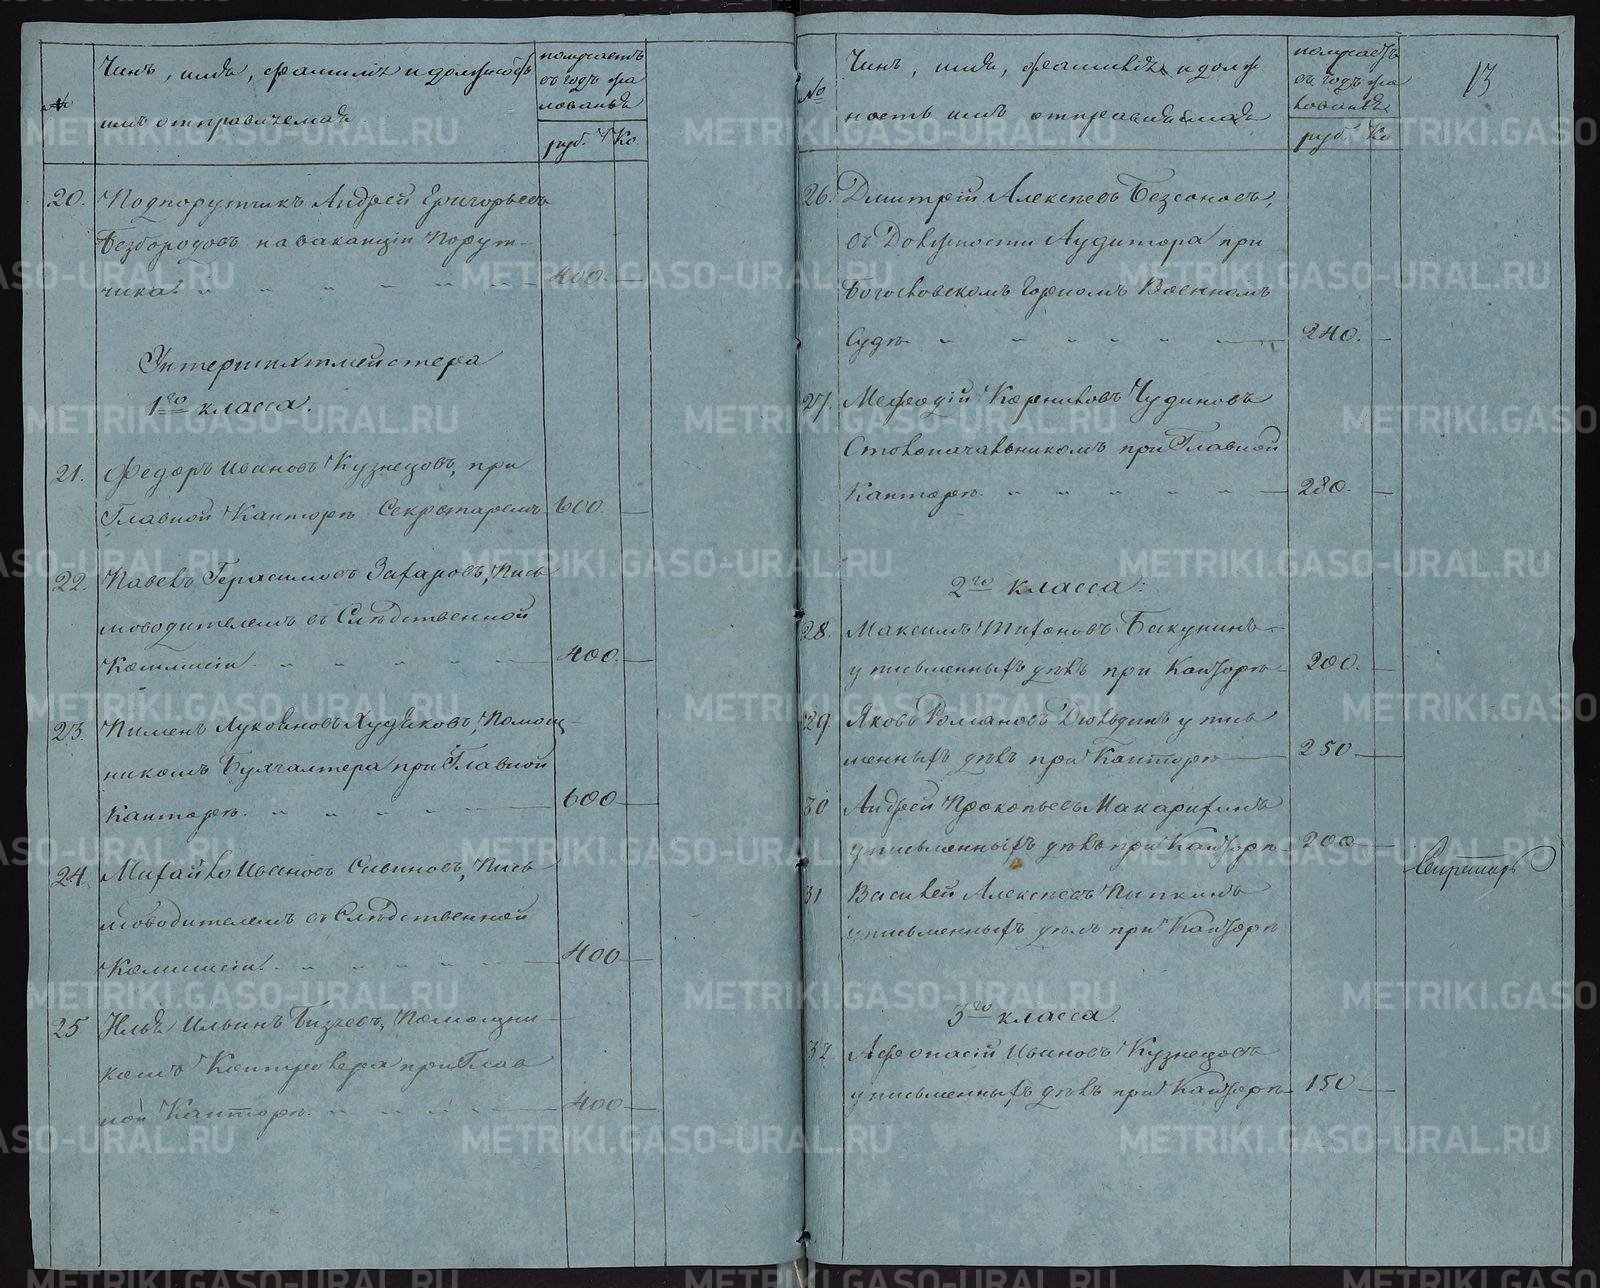 №
Чинъ, имя, фамилія и должность
имъ отправляемая
получаетъ
въ годъ жа
лованья
руб. Ко
20. Подпоручикъ Андрей Григорьевъ
Безбородовъ на вакансіи Поруч-
чика. 400.
Унтершихтмейстера
1го класса.
21. Федоръ Ивановъ Кузнецовъ, при
Главной Канторѣ Секретаремъ 600.
22. Павелъ Герасимовъ Захаровъ, Пись
моводителемъ въ Слѣдственной
Коммисіи 400.
23. Пименъ Лукояновъ Худяковъ, Помощ-
никомъ Бухгалтера при Главной
Канторѣ. 600
24. Михайло Ивановъ Сивиновъ, Пись
моводителемъ въ Слѣдственной
Коммисіи. 400
25 Илья Ильинъ Помощни-
комъ Контролера при Глав
ной Канторѣ. 400
№
Чинъ, имя, фамилія и долж
ность имъ отправляемая
получаетъ
въ годъ жа
лованья
руб. Ко
13
26. Дмитрій Алексѣевъ Безсоновъ,
въ Должности Аудитора при
Богословскомъ Горномъ Военномъ
Судѣ. 240.
27. Мефодій Корниловъ Чудиновъ
Столоначальникомъ при Главной
Канторѣ. 280.
2го класса:
28. Максимъ Тихоновъ Бакунинъ
у письменныхъ дѣлъ при Канторѣ 200.
29. Яковъ Романовъ Дюльдинъ у пись
менныхъ дѣлъ при Канторѣ 250
30 Андрей Прокопьевъ Макарихинъ
у письменныхъ дѣлъ при Канторѣ 200
31 Василей Алексѣевъ Пыпкинъ
у письменныхъ дѣлъ при Канторѣ
3го класса.
32. Афонасій Ивановъ Кузнецовъ
у письменныхъ дѣлъ при Канторѣ 150
Секретарь
METRIKI.GASO-URAL.RU